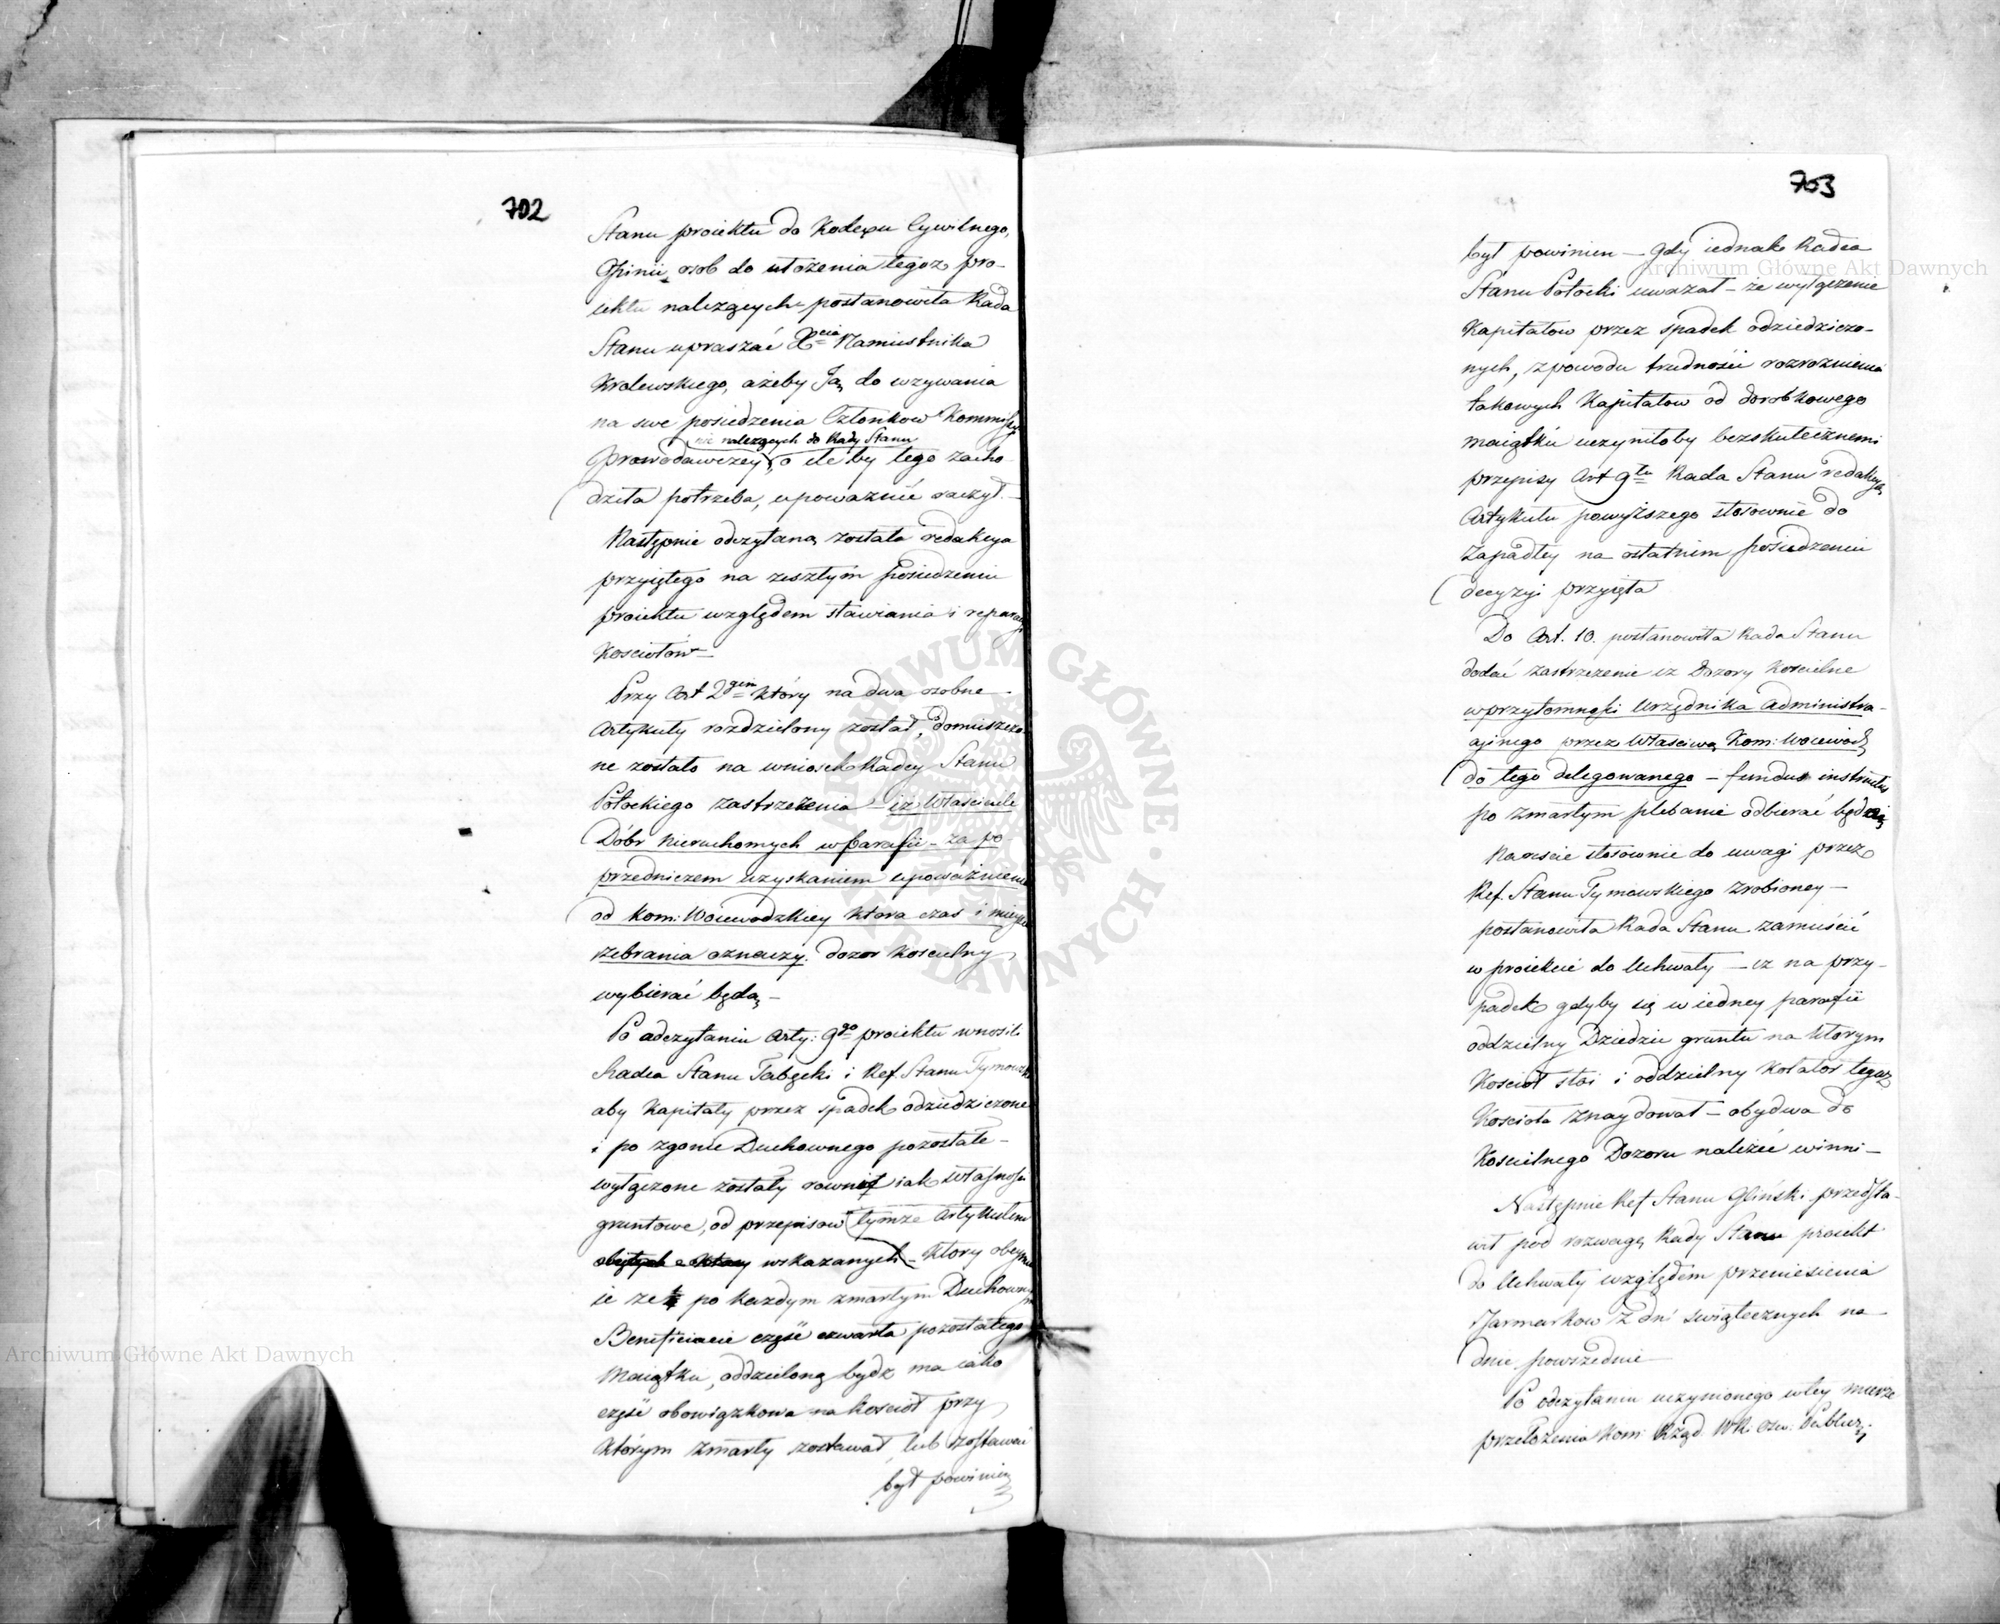 702
Stanu proiektu do Kodexu Cywilnego,
Opinii osob do ułożenia tegoż pro-
iektu należących postanowiła Rada
Stanu upraszać Xcia Namiestnika
Krolewskiego, ażeby Ją do wzywania
na swe posiedzenia Członkow Kommissyi
nie należących do Rady Stanu
Prawodawczey, o ile by tego zacho-
dziła potrzeba, upoważnić raczył.
Następnie odczytaną została redakcya
przyiętego na zeszłym posiedzeniu
proiektu względem stawiania i reparacyi
Kościołów —
Przy Art 2gim który na dwa osobne
Artykuły rozdzielony został, domieszczo-
ne zostało na wniosek Radcy Stanu
Potockiego zastrzeżenia iż Właściciele
Dóbr Nieruchomych w Parafii – za po-
przedniczem uzyskaniem upoważnienia
od Kom: Woiewodzkiey ktora czas i mieysce
zebrania oznaczy. dozor Koscielny
wybierać będą –
Po odczytaniu Arty: 9go proiektu wnosili
Radca Stanu Tabęcki i Ref. Stanu Tymowski
aby Kapitały przez spadek odziedziczone
i po zgonie Duchownego pozostałe –
wyłączone zostały rownież iak własności
gruntowe, od przepisow tymże Artykułem
wskazanych – Ktory obeymu-
ie że po każdym zmarłym Duchownym
Beneficiacie część czwarta pozostałego
Maiątku, oddzieloną bydź ma iako
część obowiązkowa na kosciół przy
którym zmarły zostawał, lub zostawać
był powinien
703
był powinien — Gdy iednak Radca
Stanu Potocki uważał – że wyłączenie
Kapitałow przez spadek odziedziczo-
nych, z powodu trudności rozroznienia
takowych Kapitałow od dorobkowego
maiątku uczyniłoby bezskutecznemi
przepisy Art 9tu Rada Stanu redakcyą
Artykułu powyższego stosownie do
zapadłey na ostatnim posiedzeniu
decyzyi przyięła
Do Art. 10. postanowiła Rada Stanu
dodać zastrzeżenie iż Dozory Koscielne
w przytomności Urzędnika Administra-
cyinego przez Właściwą Kom: Woiewodz:
do tego delegowanego – fundus instructus
po zmarłym plebanie odbierać będzie
Nareście stosownie do uwagi przez
Ref. Stanu Tymowskiego zrobioney —
postanowiła Rada Stanu zamieścić
w proiekcie do Uchwały — iż na przy-
padek gdyby się w iedney parafii
oddzielny Dziedzic gruntu na ktorym
Kościoł stoi i oddzielny Kolator tegoż
Kościoła znaydował – obydwa do
Koscielnego Dozoru należeć winni –
Następnie Ref Stanu Gliński przedsta-
wił pod rozwagę Rady Stanu proiekt
do Uchwały względem przeniesienia
Jarmarkow z dni swiątecznych na
dnie powszednie
Po odczytaniu uczynionego w tey mierze
przełożenia Kom: Rząd: WR: Osw: Publicz:
Archiwum Główne Akt Dawnych
Archiwum Główne Akt Dawnych
ARCHIWUM GŁÓWNE AKT DAWNYCH